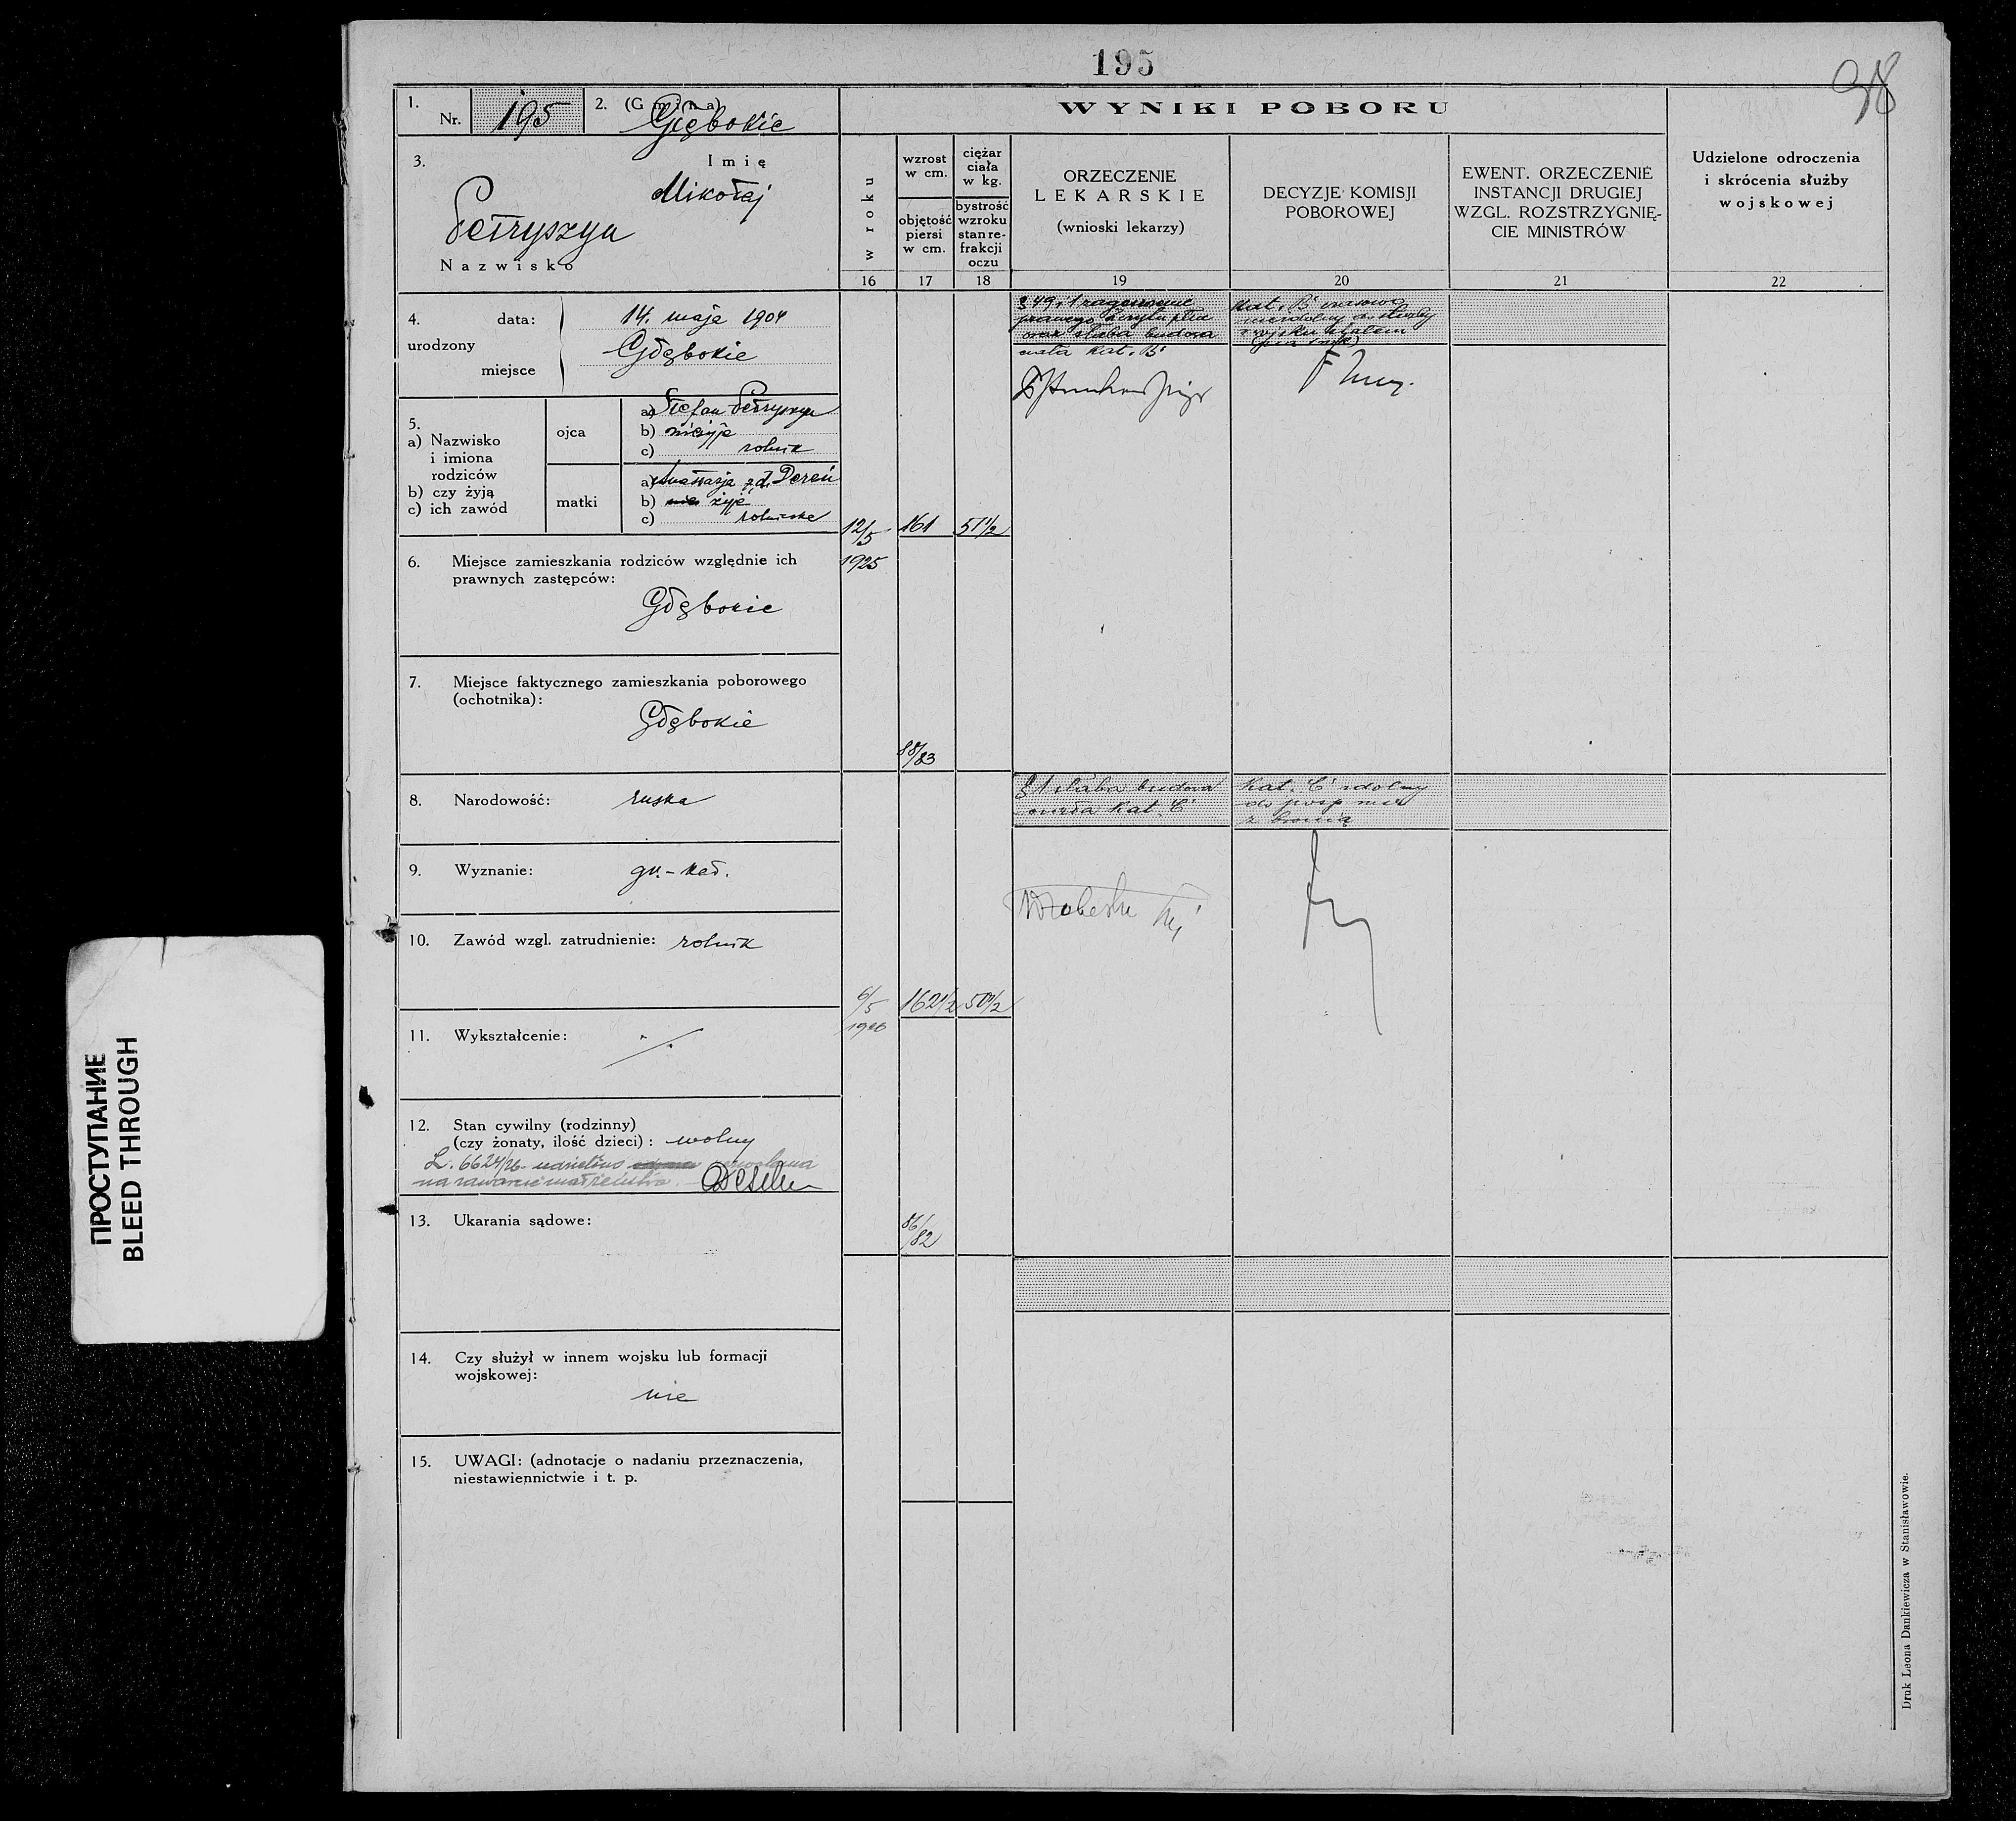 195
98
1.
Nr. 195
2. (Gmina)
Głębokie
WYNIKI POBORU
3.
Imię
Mikołaj
Petryszyn
Nazwisko
w roku
wzrost
w cm.
objętość
piersi
w cm.
ciężar
ciała
w kg.
bystrość
wzroku
stan re-
frakcji
oczu
ORZECZENIE
LEKARSKIE
(wnioski lekarzy)
DECYZJE KOMISJI
POBOROWEJ
EWENT. ORZECZENIE
INSTANCJI DRUGIEJ
WZGL. ROZSTRZYGNIĘ-
CIE MINISTRÓW
Udzielone odroczenia
i skrócenia służby
wojskowej
16 17 18 19 20 21 22
4. data: 14. maja 1904
urodzony
Głębokie
miejsce
5.
a) Nazwisko
i imiona
rodziców
b) czy żyją
c) ich zawód
ojca
a) Stefan Petryszyn
b) nieżyje
c) rolnik
matki
a) Anastazja z d. Dereń
b) nie żyje
c) rolniczka
12/5
1925
161
51 1/2
88/83
prawego
oraz słaba budowa
ciała kat. B
Kat. B czasowo
niezdolny do służby
6. Miejsce zamieszkania rodziców względnie ich
prawnych zastępców:
Głębokie
7. Miejsce faktycznego zamieszkania poborowego
(ochotnika):
Głębokie
8. Narodowość: ruska
§ 1 słaba budowa
ciała Kat. C
Kat. C zdolny
do posp. rusz
z bronią
9. Wyznanie: gr.-kat.
10. Zawód wzgl. zatrudnienie: rolnik
6/5
1926
162 1/2
50 1/2
86/82
11. Wykształcenie: ·/.
12. Stan cywilny (rodzinny)
(czy żonaty, ilość dzieci): wolny
L. 6624/26 udzielono zezwolenia
na zawarcie małżeństwa.
13. Ukarania sądowe:
14. Czy służył w innem wojsku lub formacji
wojskowej:
nie
15. UWAGI: (adnotacje o nadaniu przeznaczenia,
niestawiennictwie i t. p.
Druk Leona Dankiewicza w Stanisławowie.
ПРОСТУПАНИЕ
BLEED THROUGH